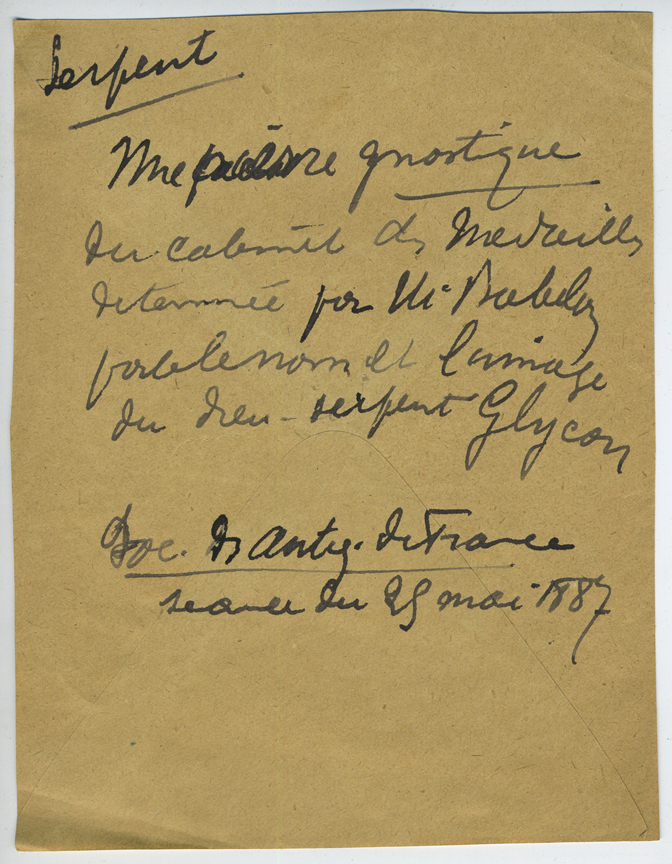 Serpent
Une pierre gnostique
du cabinet des Medailles
determinée par M. Babelon
porte le nom et l'image
du dieu-serpent Glycon
Soc. des Antiq. de France
seance du 25 mai 1887